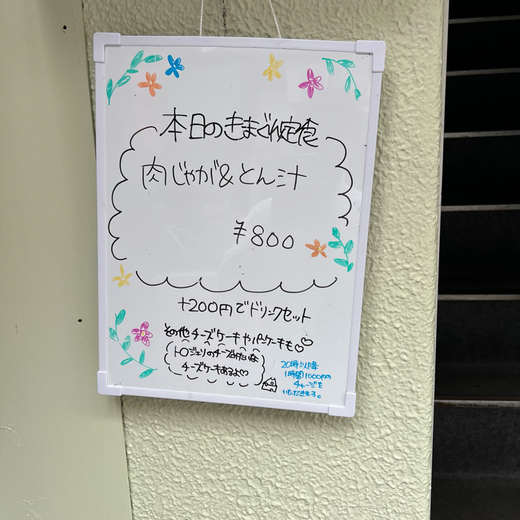 本日のきまぐれ定食
肉じゃが&とん汁
¥800
+200円でドリンクセット
その他チーズケーキやパンケーキも♡
トムとジェリーのチーズみたいな
チーズケーキあるよ♡
20時以降
1時間1000円
チャージを
いただきます。